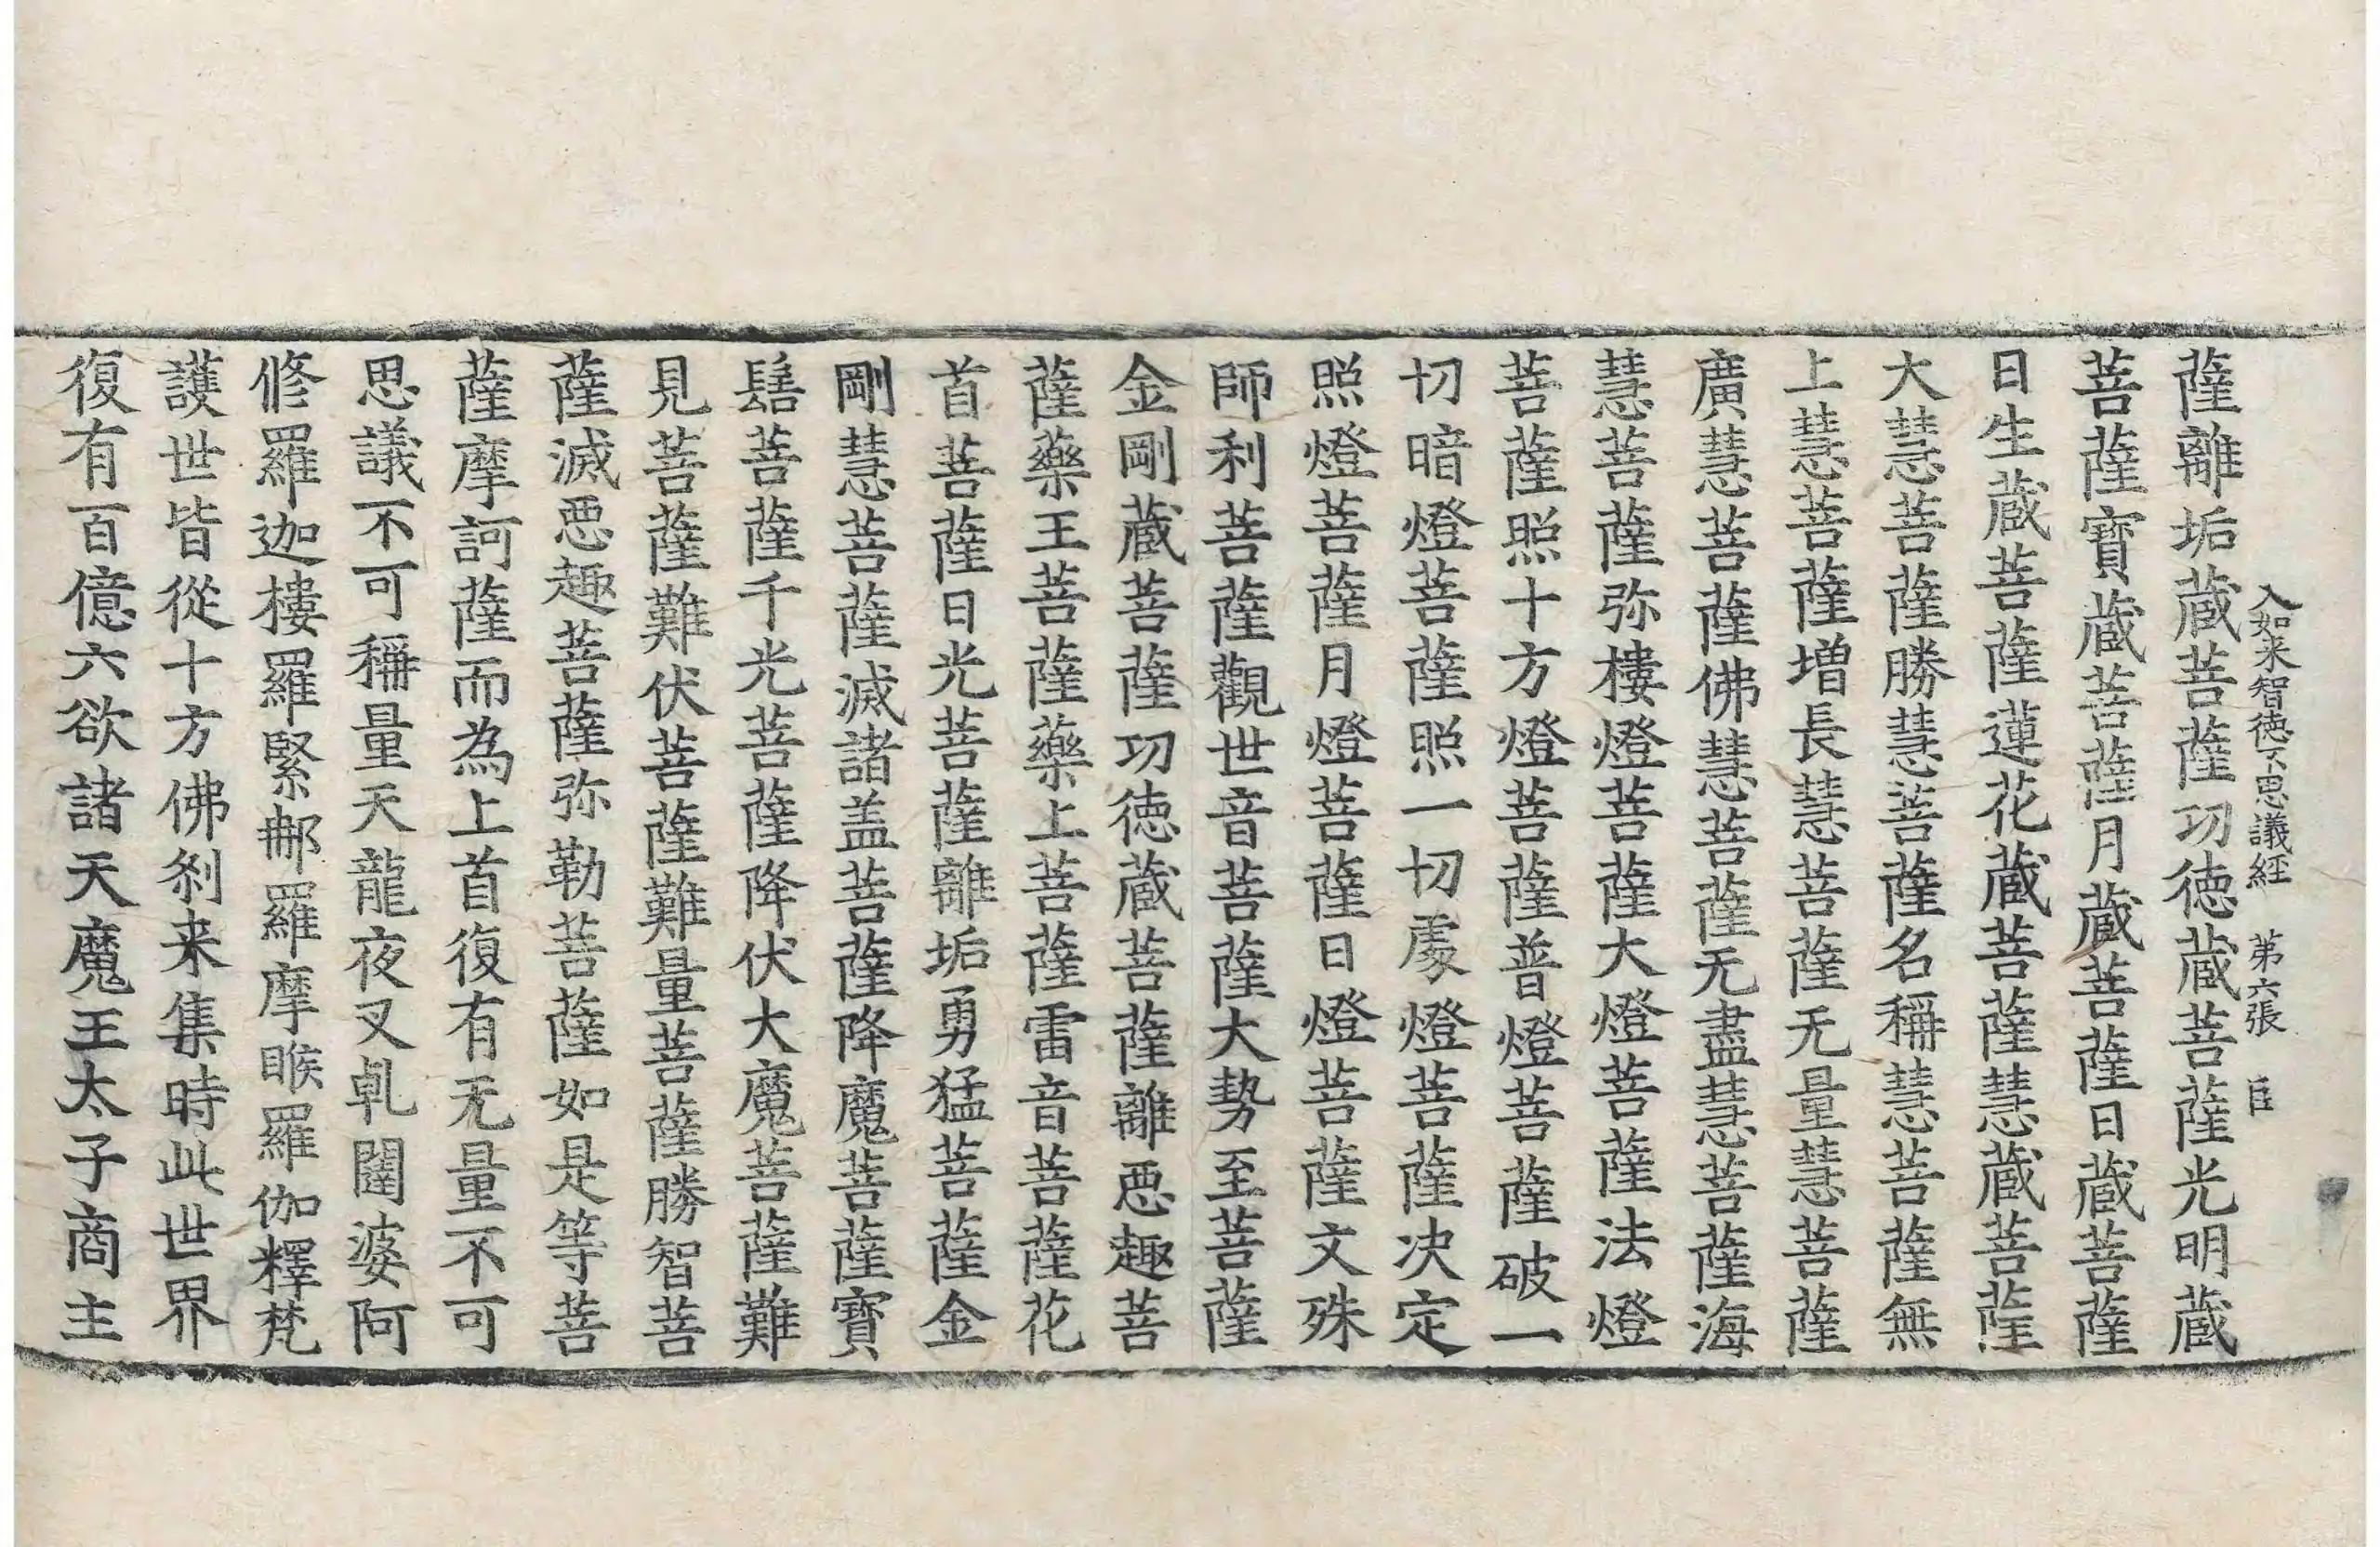 入如来智徳不思議經　第六張　臣
薩離垢蔵菩薩功徳蔵菩薩光明蔵
菩薩寶蔵菩薩月蔵菩薩日蔵菩薩
日生蔵菩薩蓮花蔵菩薩慧蔵菩薩
大慧菩薩勝慧菩薩名稱慧菩薩無
上慧菩薩増長慧菩薩无量慧菩薩
廣慧菩薩佛慧菩薩无盡慧菩薩海
慧菩薩弥樓燈菩薩大燈菩薩法燈
菩薩照十方燈菩薩普燈菩薩破一
切暗燈菩薩照一切處燈菩薩决定
照燈菩薩月燈菩薩日燈菩薩文殊
師利菩薩觀世音菩薩大勢至菩薩
金剛蔵菩薩功徳蔵菩薩離惡趣菩
薩藥王菩薩藥上菩薩雷音菩薩花
首菩薩日光菩薩離垢勇猛菩薩金
剛慧菩薩滅諸盖菩薩降魔菩薩寶
髻菩薩千光菩薩降伏大魔菩薩難
見菩薩難伏菩薩難量菩薩勝智菩
薩滅惡趣菩薩弥勒菩薩如是等菩
薩摩訶薩而為上首復有无量不可
思議不可稱量天龍夜叉乹闥婆阿
修羅迦樓羅緊那羅摩睺羅伽釋梵
護世皆從十方佛刹来集時此世界
復有百億六欲諸天魔王太子商主